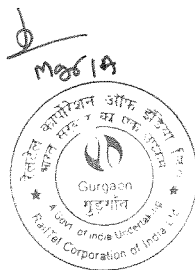 रेलटेल कॉर्पोरेशन ऑफ इंडिया लि
भारत सरकार का एक उपक्रम
Gurgaon
गुड़गाँव
A Govt. of India Undertaking
RailTel Corporation of India Ltd